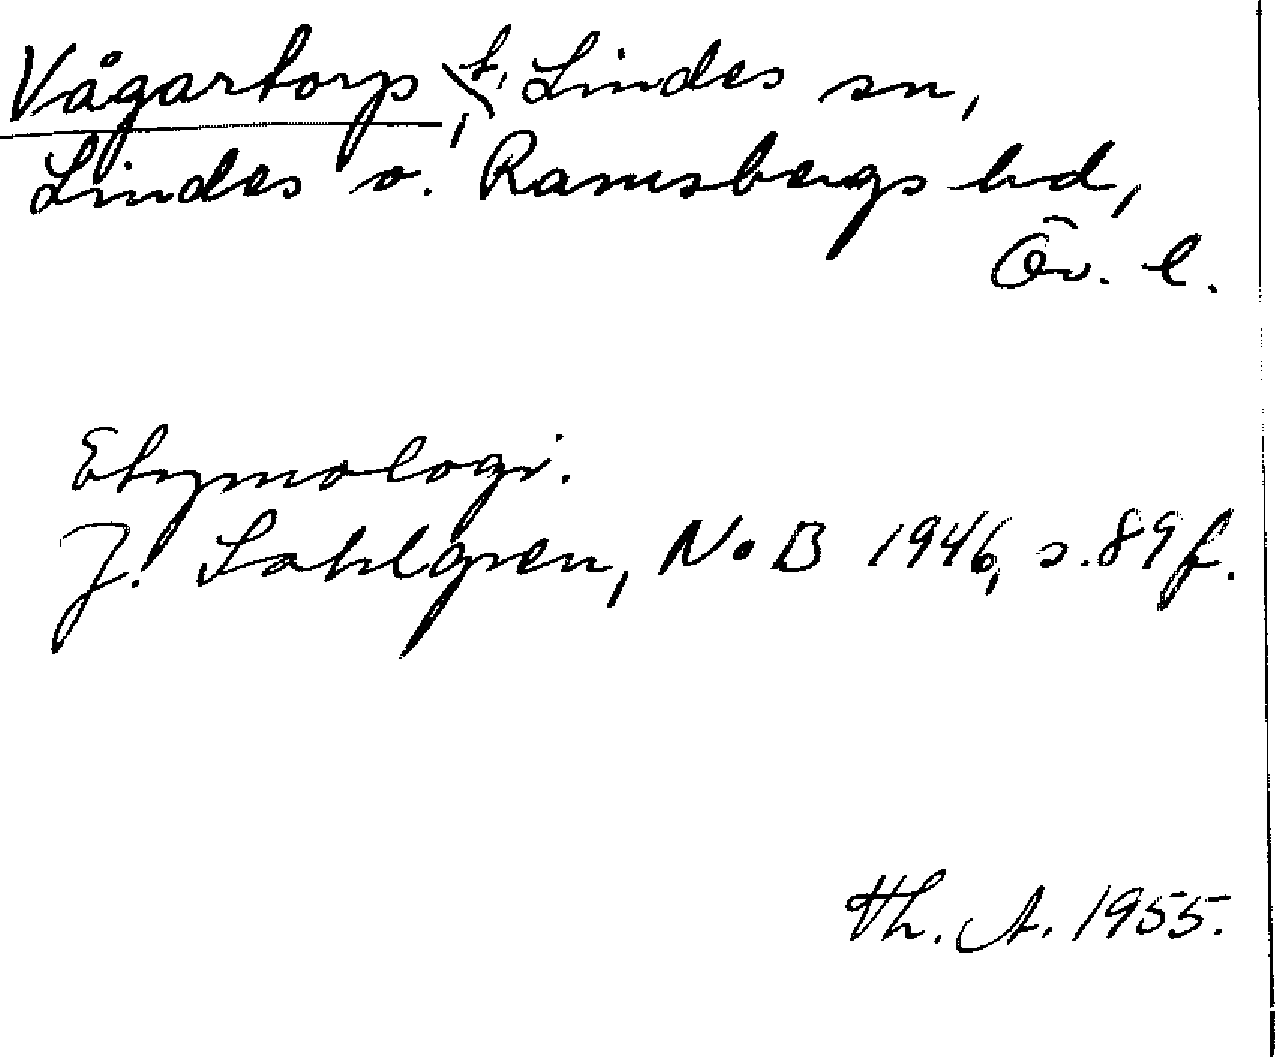 Vågartorp, t. Lindes sn,
Lindes o. Ramsbergs hd,
Öv. l.
Etymologi.
J. Sahlgren, NoB 1946, s. 89 f.
Th. A. 1955.